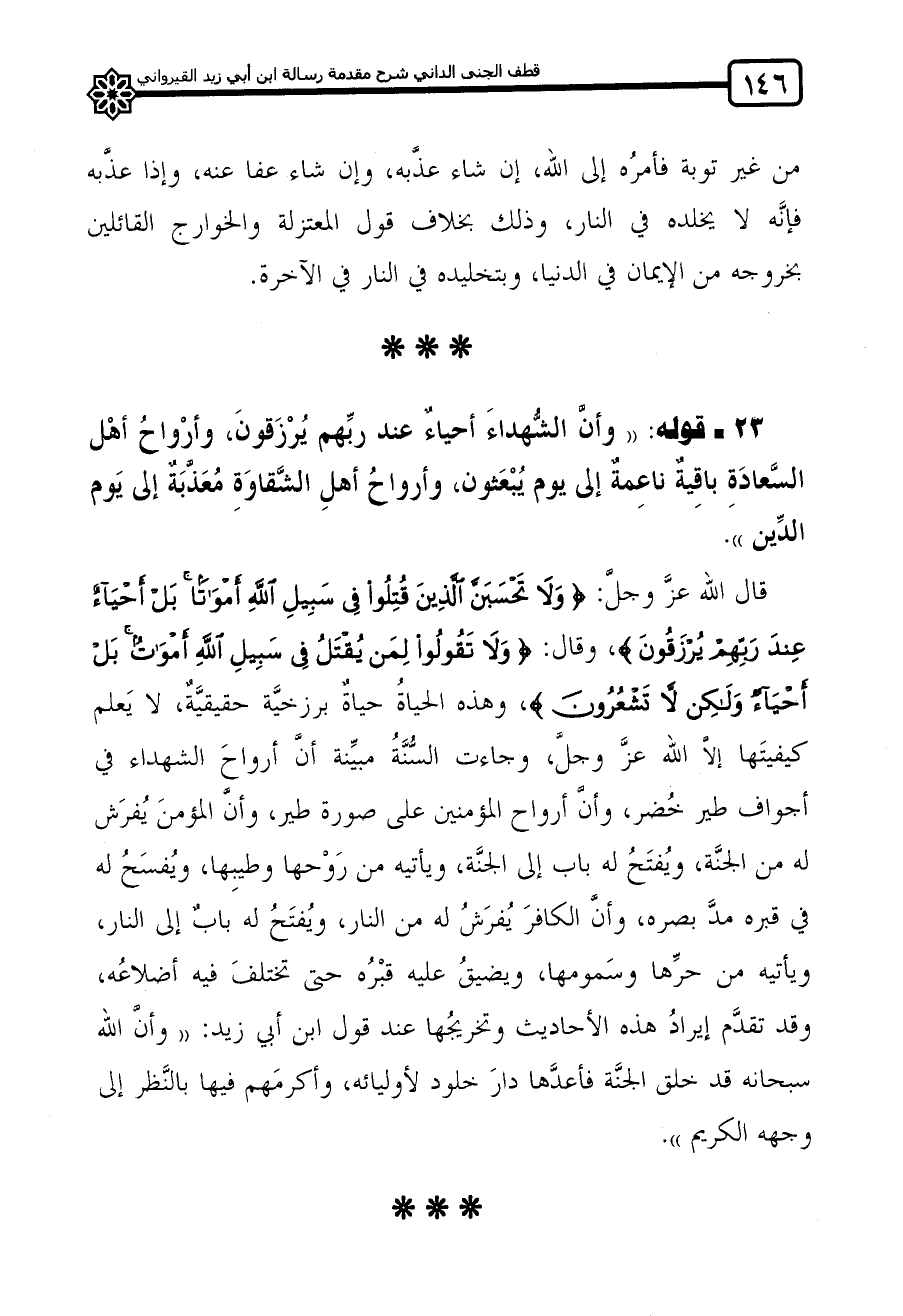 ١٤٦
قطف الجنى الداني شرح مقدمة رسالة ابن أبي زيد القيرواني
من غير توبة فأمرُه إلى الله، إن شاء عذَّبه، وإن شاء عفا عنه، وإذا عذَّبه
فإنَّه لا يخلده في النار، وذلك بخلاف قول المعتزلة والخوارج القائلين
بخروجه من الإيمان في الدنيا، وبتخليده في النار في الآخرة.
* * *
٢٣ ـ قوله: « وأنَّ الشُّهداءَ أحياءٌ عند ربِّهم يُرْزَقونَ، وأرْواحُ أهْل
السَّعادَةِ باقِيةٌ ناعِمةٌ إلى يوم يُبْعَثون، وأرواحُ أهلِ الشَّقاوَةِ مُعَذَّبَةٌ إلى يَوم
الدِّين ».
قال الله عزَّ وجلَّ: ﴿ وَلَا تَحْسَبَنَّ ٱلَّذِينَ قُتِلُواْ فِى سَبِيلِ ٱللَّهِ أَمْوَٰتًۢا ۚ بَلْ أَحْيَآءٌ
عِندَ رَبِّهِمْ يُرْزَقُونَ ﴾، وقال: ﴿ وَلَا تَقُولُواْ لِمَن يُقْتَلُ فِى سَبِيلِ ٱللَّهِ أَمْوَٰتٌۢ ۚ بَلْ
أَحْيَآءٌ وَلَٰكِن لَّا تَشْعُرُونَ ﴾، وهذه الحياةُ حياةٌ برزخيَّة حقيقيَّةٌ، لا يَعلم
كيفيتَها إلاَّ الله عزَّ وجلَّ، وجاءت السُّنَّةُ مبيِّنة أنَّ أرواحَ الشهداء في
أجواف طير خُضر، وأنَّ أرواح المؤمنين على صورة طير، وأنَّ المؤمنَ يُفرَش
له من الجنَّة، ويُفتَحُ له باب إلى الجنَّة، ويأتيه من رَوْحها وطيبِها، ويُفسَحُ له
في قبره مدَّ بصره، وأنَّ الكافرَ يُفرَشُ له من النار، ويُفتَحُ له بابٌ إلى النار،
ويأتيه من حرِّها وسَمومها، ويضيقُ عليه قبْرُه حتى تختلفَ فيه أضلاعُه،
وقد تقدَّم إيرادُ هذه الأحاديث وتخريجُها عند قول ابن أبي زيد: « وأنَّ الله
سبحانه قد خلق الجنَّة فأعدَّها دارَ خلود لأوليائه، وأكرمَهم فيها بالنَّظر إلى
وجهه الكريم ».
* * *